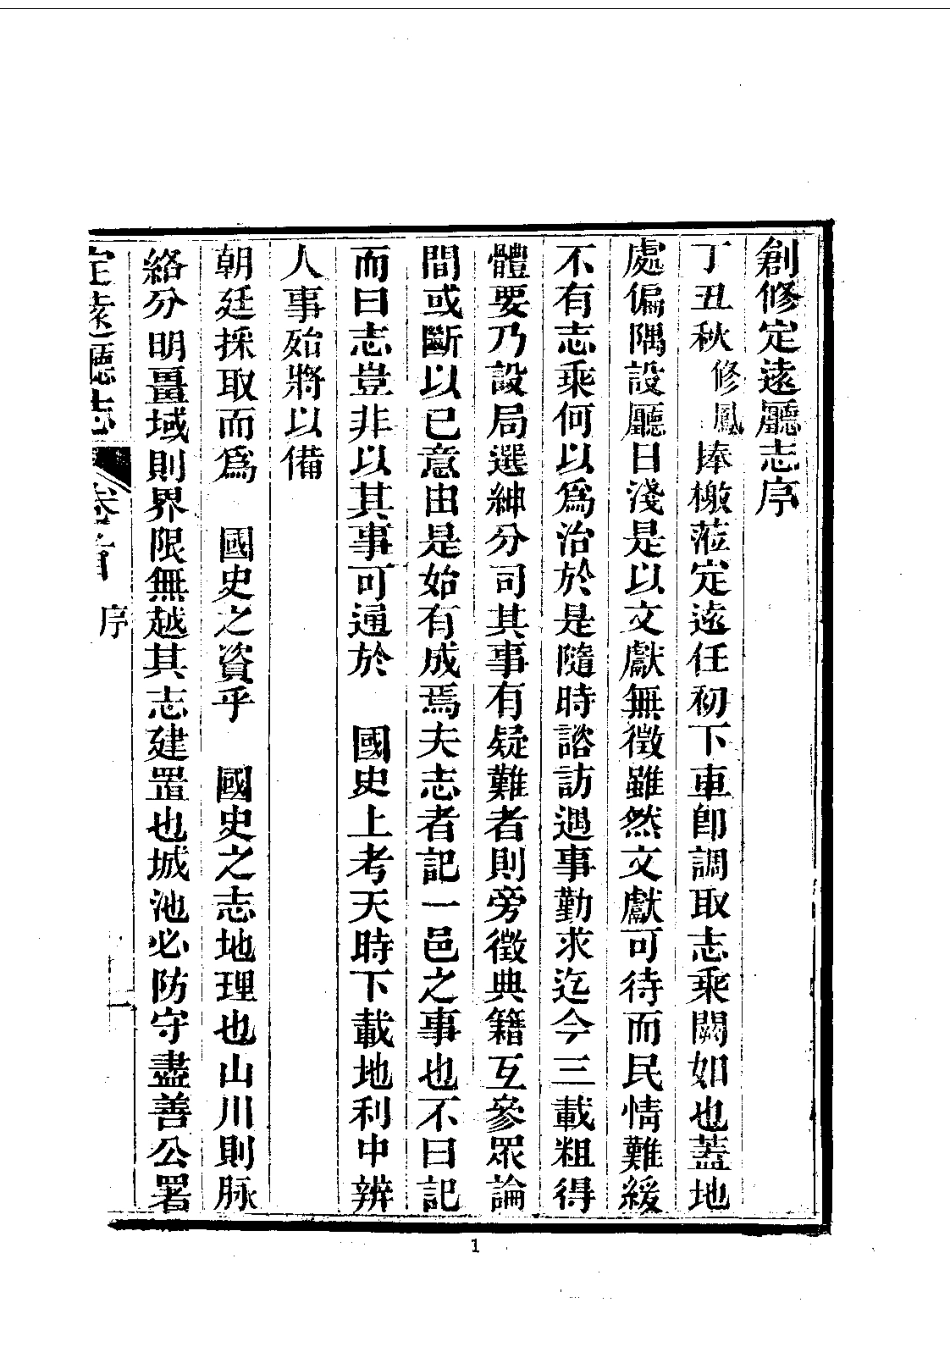 創修定遠廳志序
丁丑秋修鳳捧檄蒞定遠任初下車卽調取志乘闕如也蓋地
處偏隅設廳日淺是以文獻無徵雖然文獻可待而民情難緩
不有志乘何以爲治於是隨時諮訪遇事勤求迄今三載粗得
體要乃設局選紳分司其事有疑難者則旁徵典籍互參眾論
間或斷以已意由是始有成焉夫志者記一邑之事也不曰記
而曰志豈非以其事可通於　國史上考天時下載地利中辨
人事殆將以備
朝廷採取而爲　國史之資乎　國史之志地理也山川則脉
絡分明畺域則界限無越其志建置也城池必防守盡善公署
定遠廳志　卷首　序　一
1